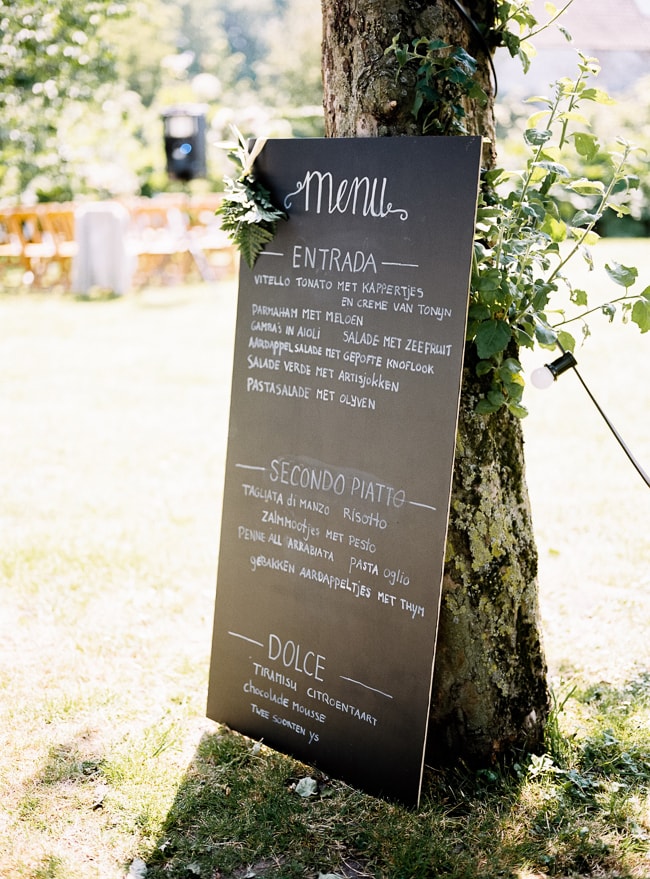 menu
ENTRADA
VITELLO TONATO MET KAPPERTJES
EN CREME VAN TONYN
PARMAHAM MET MELOEN
GAMBA'S IN AIOLI SALADE MET ZEEFRUIT
AARDAPPELSALADE MET GEPOFTE KNOFLOOK
SALADE VERDE MET ARTISJOKKEN
PASTASALADE MET OLYVEN
SECONDO PIATTO
TAGLIATA di MANZO RISOTTO
ZALMMOOTJES MET PESTO
PENNE ALL ARRABIATA PASTA OGLIO
GEBAKKEN AARDAPPELTJES MET THYM
DOLCE
TIRAMISU CITROENTAART
chocolade MOUSSE
TWEE SOORTEN YS